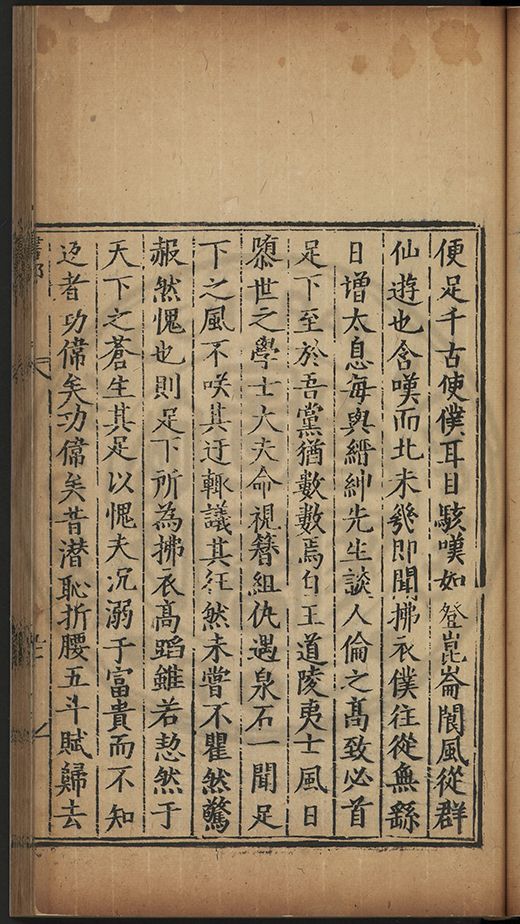 便足千古使僕耳目駭嘆如登崑崙閬風從群
仙遊也含嘆而北未幾即聞拂衣僕往從無繇
日增太息每與縉紳先生談人倫之髙致必首
足下至於吾黨猶數數焉自王道陵夷士風日
隳世之學士大夫命視簪組仇遇泉石一聞足
下之風不咲其迂輒議其狂然未嘗不瞿然驚
赧然愧也則足下所為拂衣髙蹈雖若恝然于
天下之蒼生其足以愧夫沉溺于富貴而不知
返者功偉矣功偉矣昔潜恥折腰五斗賦歸去